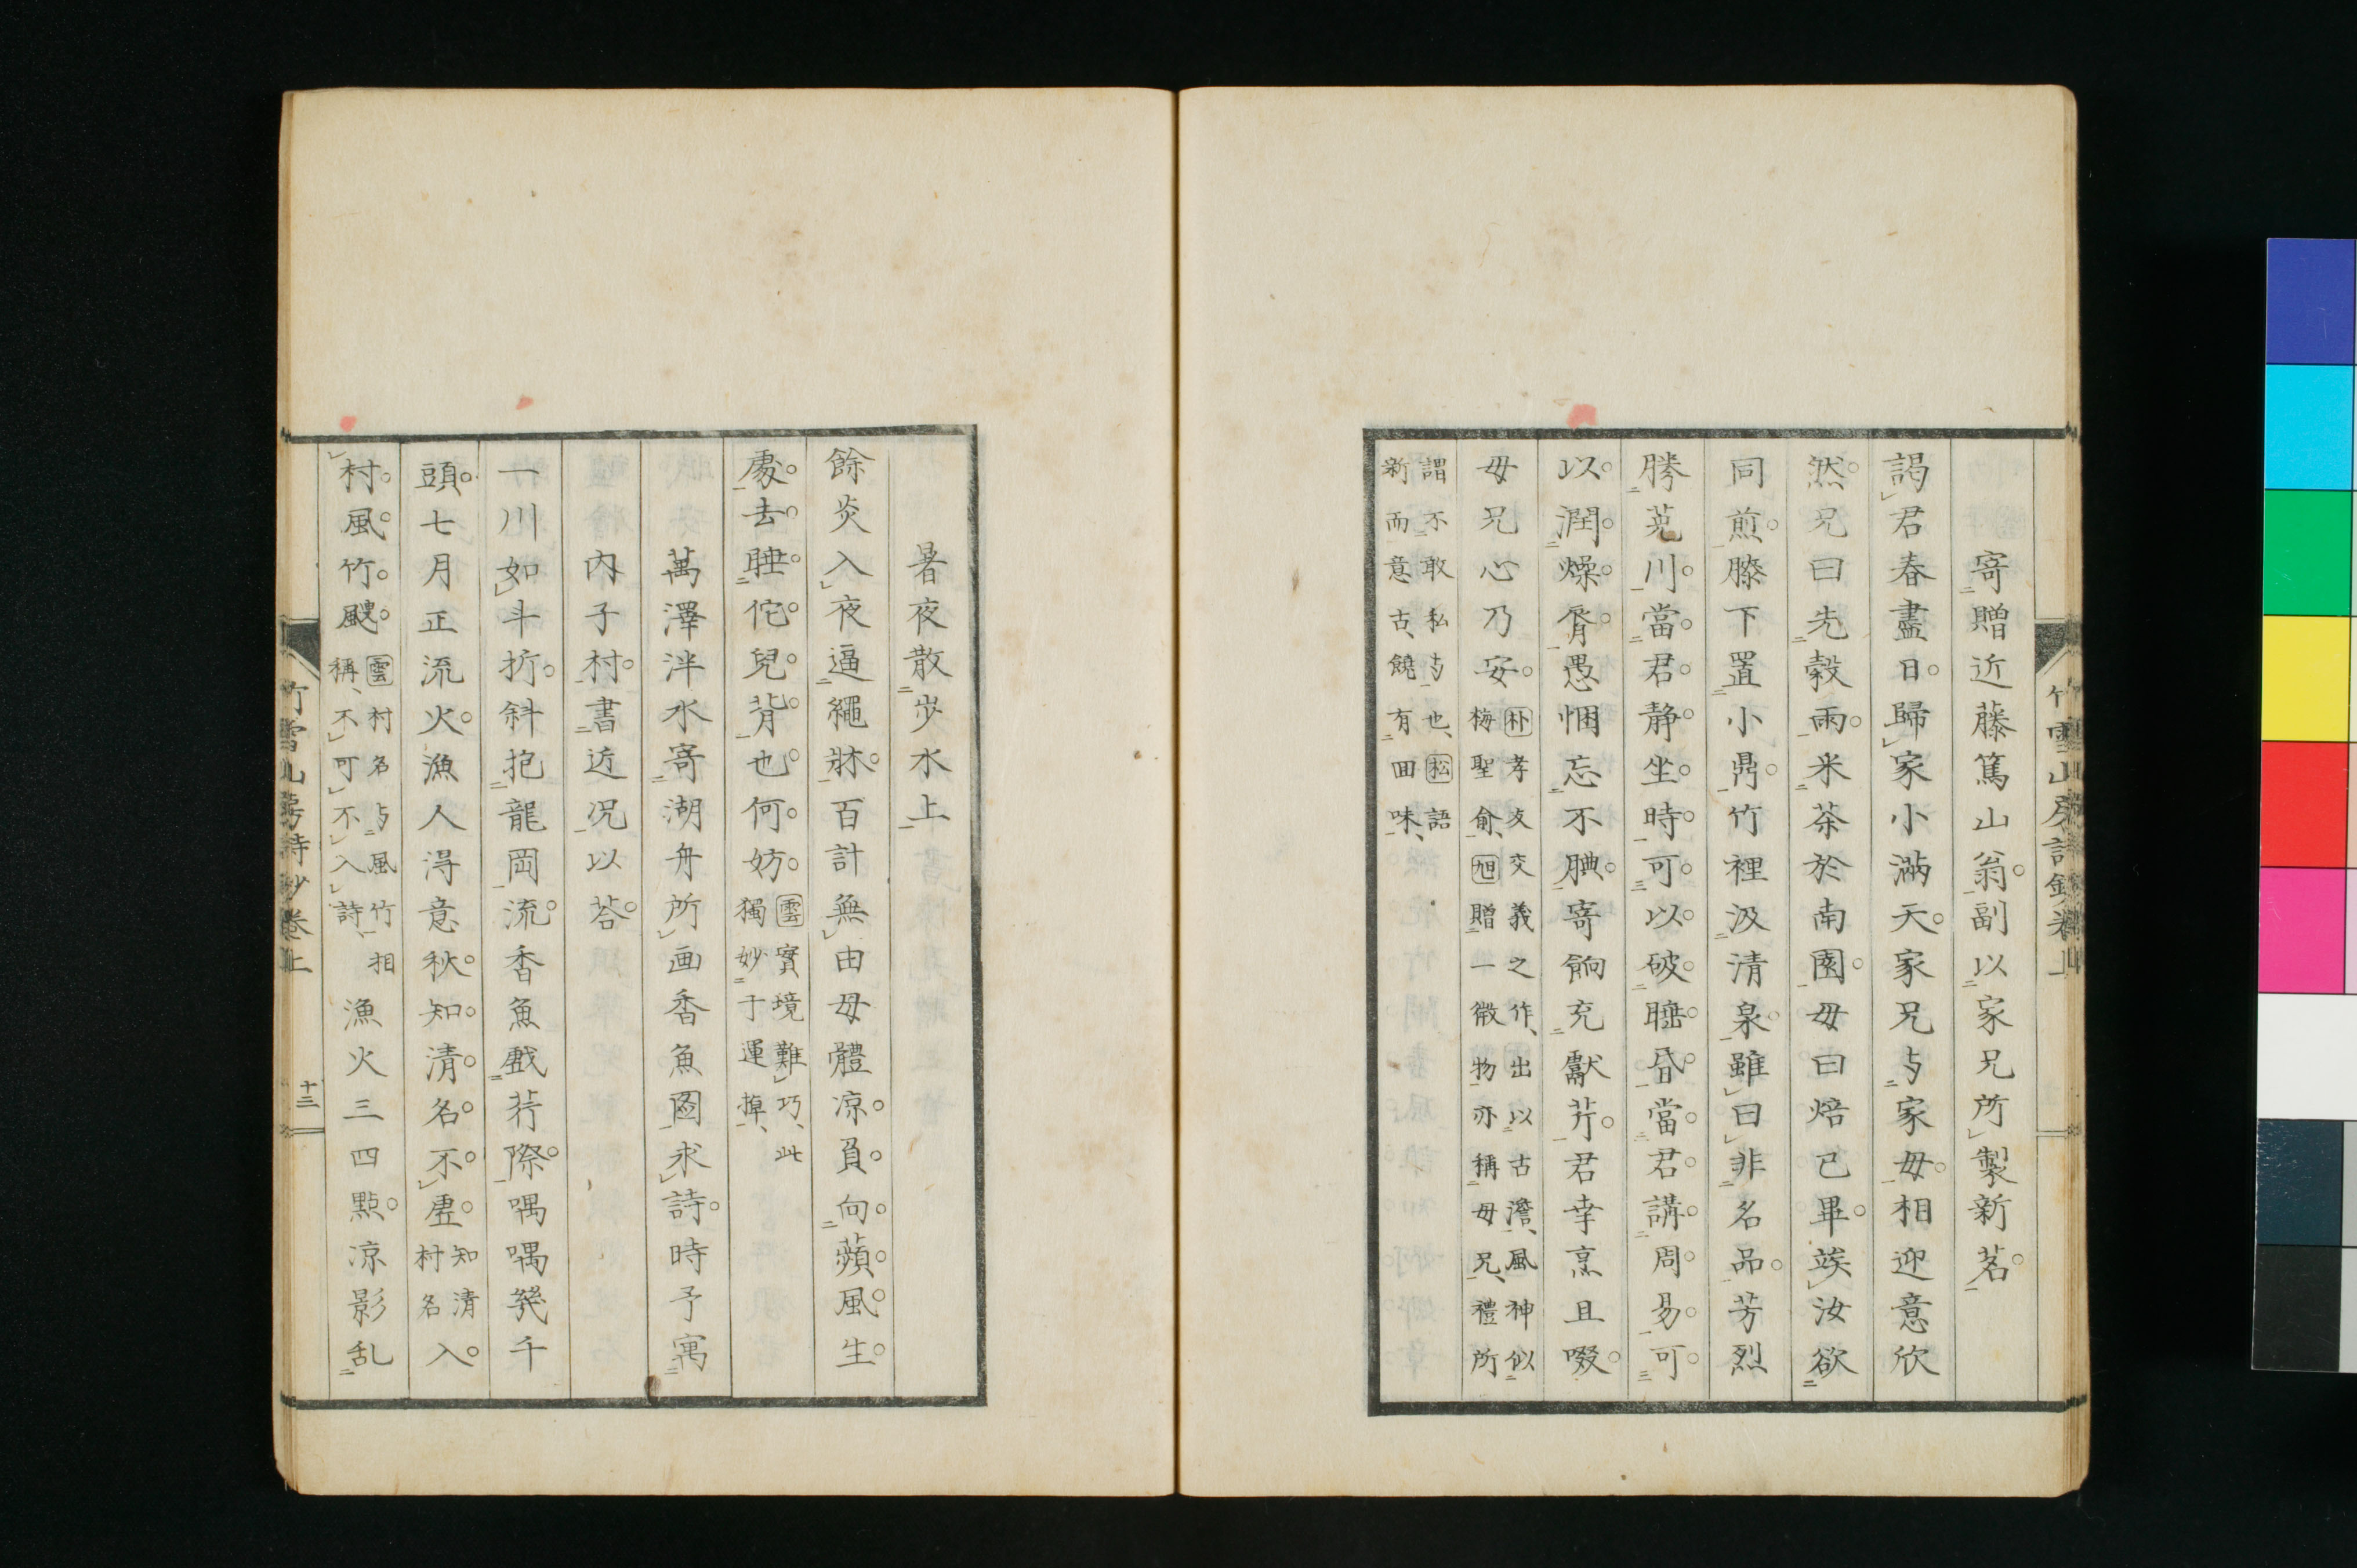 寄贈近藤篤山翁副以家兄所製新茗
謁君春盡日歸家小滿天家兄与家毋相迎意欣
然兄曰先穀雨米茶於南園毋曰焙已畢竢汝欲
同煎膝下置小鼎竹裡汲清泉雖曰非名品芳烈
勝莵川當君静坐時可以破睡昏當君講周易可
以潤燥脣愚悃忘不腆寄餉充獻芹君幸烹且啜
毋兄心乃安
朴孝友交義之作出以古澹風神似
梅聖俞旭贈一微物亦稱毋兄禮所
謂不敢私与也松語
新而意古饒有回味
暑夜散步水上
餘炎入夜逼繩牀百計無由毋體凉負向蘋風生
處去睡佗兒背也何妨
雲實境難巧此
獨妙于運掉
萬澤泮水寄湖舟所画香魚圖求詩時予寓
内子村書近况以荅
一川如斗折斜抱龍岡流香魚戲荇際喁喁幾千
頭七月正流火漁人淂意秋知清名不虚
知清
村名
入
村風竹颸
雲村名与風竹相
稱不可不入詩
漁火三四點凉影乱
竹雪山房詩鈔卷上
十三